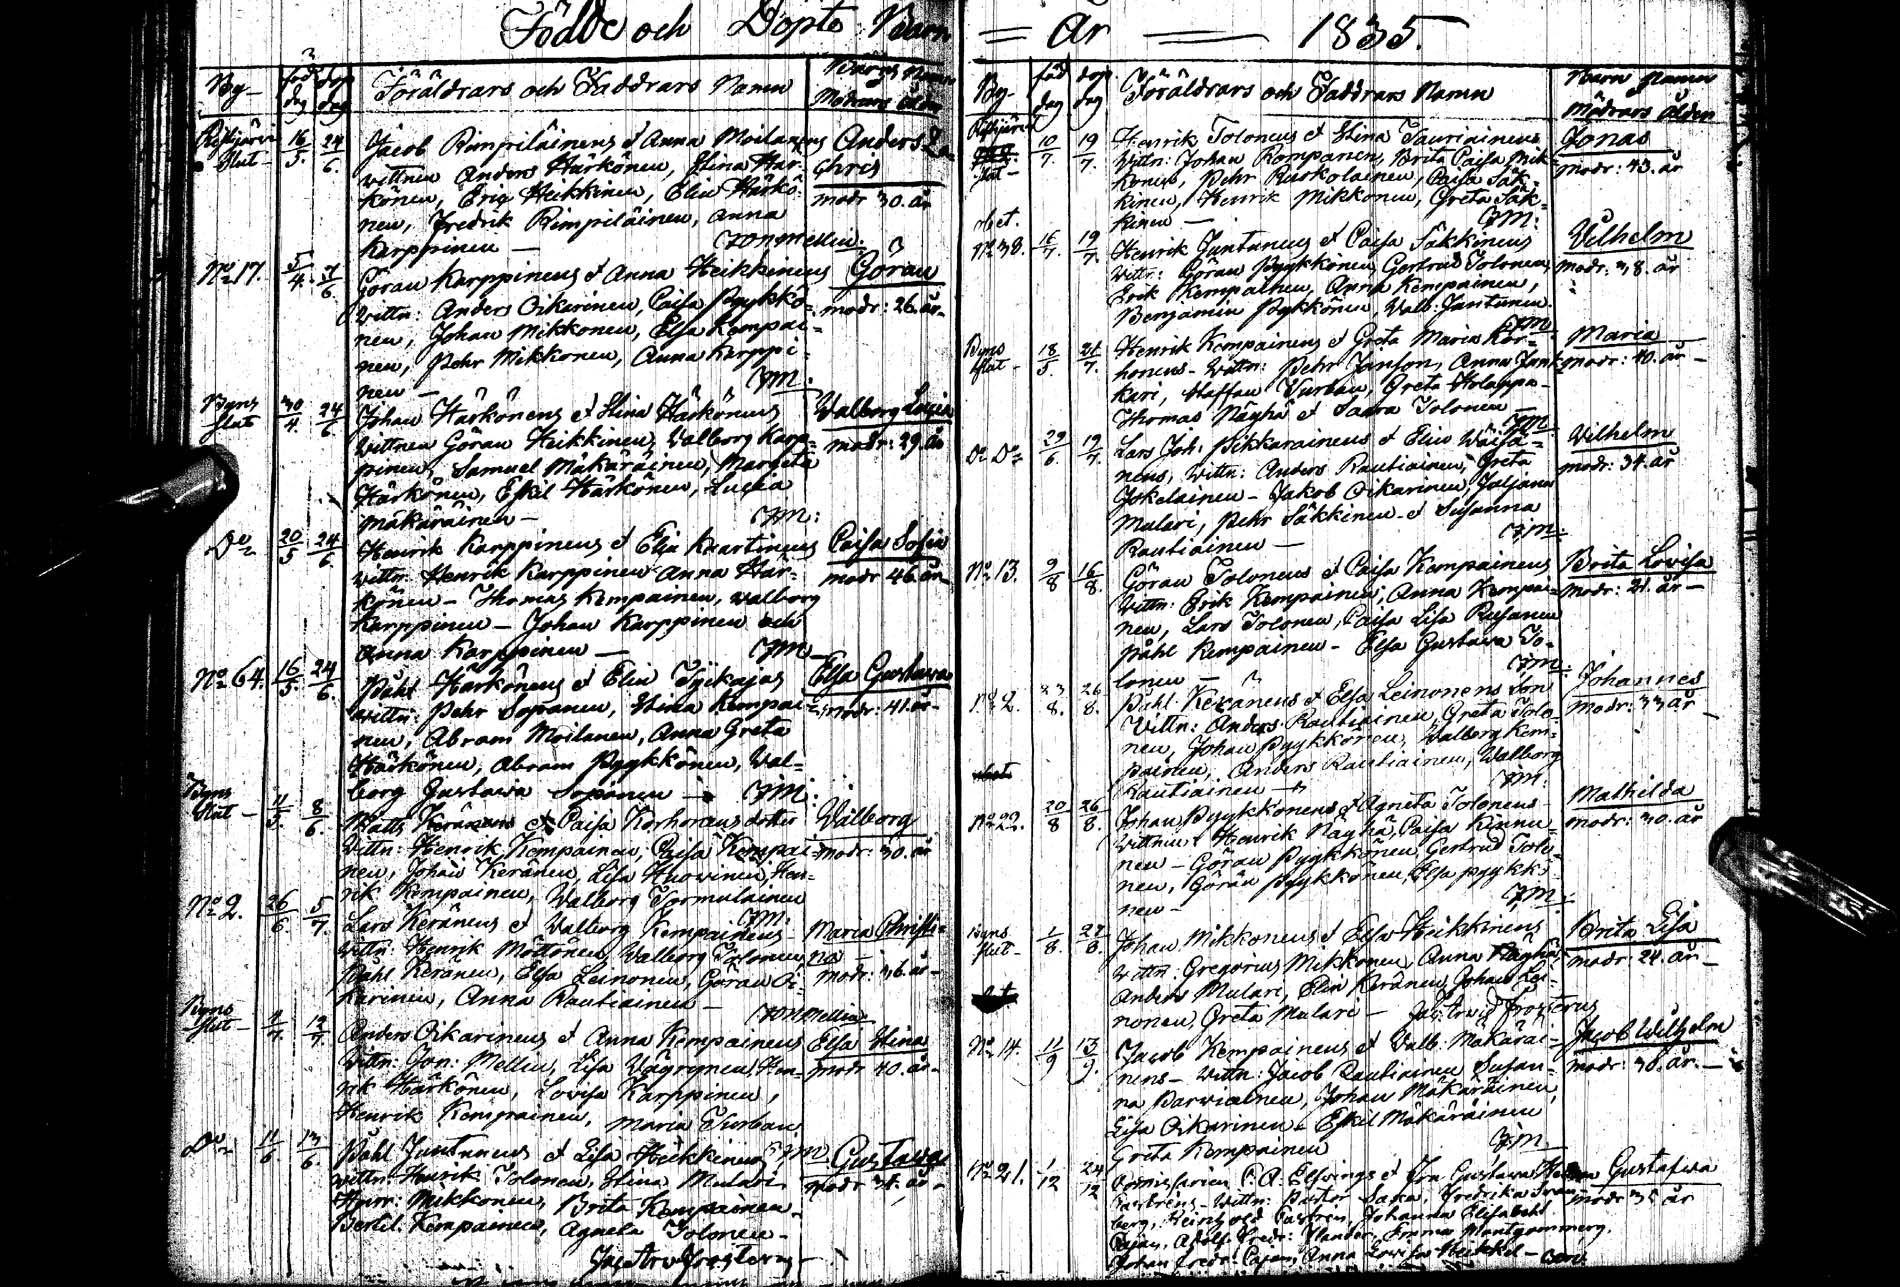 Födde och Döpte Barn
By
föd dag
döp dag
Föräldrars och Faddrars Namn
Barns Namn
Modrars ålder
16/5. 24/6.
Jacob Rimpiläinens et Anna Moilanens
wittnen Anders Härkönen, Stina Här-
könen, Erig Heikkinen, Elin Härkö-
nen, Fredrik Rimpiläinen, Anna
Karppinen —
Anders Za-
chris
modr 30. år
No 17. 5/4. 7/6.
Göran Karppinens et Anna Heikkinens
wittn: Anders Oikarinen, Caisa Pyykkö-
nen, Johan Mikkonen, Elsa Kempai-
nen, Pehr Mikkonen, Anna Karppi-
nen —
JM:
Göran
modr: 26. år
Byns
Slut
30/4. 24/6.
Johan Härkönens et Stina Härkönens
wittnen Göran Heikkinen, Walborg Karp-
pinen, Samuel Mäkäräinen, Margeta
Härkönen, Eskil Härkönen, Lucia
Mäkäräinen —
JM:
Walborg Lucia
modr: 29. år
Do 20/5 24/6
Henrik Karppinens et Elsa Kvartinens
wittn: Henrik Karppinen Anna Här-
könen — Thomas Kempainen, Walborg
Karppinen — Johan Karppinen och
Anna Karppinen —
JM
Caisa Sofia
modr 46. år
No 64. 16/5. 24/6.
Påhl Härkönens et Elin
wittn: Pehr Sopanen, Stina Kempai-
nen, Abram Moilanen, Anna Greta
Härkönen, Abram Pyykkönen, Wal-
borg Gustawa Sopanen —
JM:
Elsa Gustawa
modr: 41. år
Byns
Slut — 11/5. 8/6.
Matts Keränens et Caisa Korhonens dotter
wittn: Henrik Kempainen, Caisa Kempai-
nen, Johan Keränen, Lisa Huowinen, Hen-
rik Kempainen, Walborg Tormulainen
JM:
Walborg
modr: 30. år
No 2. 26/6 5/7.
Lars Keränens et Walborg Kempainens
wittn: Henrik Möttönen, Walborg Tolonen,
Påhl Keränen, Elsa Leinonen, Göran Oi-
karinen, Anna Rautiainen —
Maria Christi-
na —
modr: 36. år
Byns
Slut —
Anders Oikarinens et Anna Kempainens
wittn: Jon: Mellin, Lisa Wägrynen, Hen-
rik Härkönen, Lovisa Karppinen,
Henrik Kempainen, Maria Turban
JM
Elsa Stina
modr 40. år
Do 11/6 13/6
Påhl Juntunens et Lisa Heikkinens
wittn: Henrik Tolonen, Stina Mulari
Henr: Mikkonen, Brita Kempainen
Bertil Kempainen, Agneta Tolonen —
Gustava
modr 34. år
= År — 1835.
By-
föd dag
döp dag
Föräldrars och Faddrars Namn
Barn Namn
Mödrars ålder
10/7. 19/7.
Henrik Tolonens et Stina Tauriainens
wittn: Johan Komppanen, Brita Caisa Mik-
konen, Pehr Ruskolainen, Caisa Säk-
kinen, Henrik Mikkonen, Greta Säk-
kinen —
JM:
Jonas
modr: 43. år
No 38. 16/7. 19/7.
Henrik Juntunens et Caisa Säkkinens
wittn: Göran Pyykkönen, Gertrud Tolonen,
Erik Kempainen, Anna Kempainen,
Benjamin Pyykkönen, Walb. Juntunen.
JM
Wilhelm
modr: 38. år
Byns
Slut — 18/5. 21/7.
Henrik Kempainens et Greta Maria Kor-
honens — wittn: Pehr Janson, Anna Junt-
kari, Staffan Turban, Greta Holappa —
Thomas Näyhä et Saara Tolonen —
JM
Maria
modr: 40. år —
Do Do 29/6. 19/7.
Lars Joh: Pikkarainens et Elin Wäisä-
nens, wittn: Anders Rautiainen, Greta
Jokelainen — Jakob Oikarinen, Juljana
Mulari, Pehr Säkkinen et Susanna
Rautiainen —
JM:
Wilhelm
modr: 34. år
No 13. 9/8 16/8.
Göran Tolonens et Caisa Kempainens
wittn: Erik Kempainen, Anna Kempai-
nen, Lars Tolonen, Caisa Lisa Rusanen
Påhl Kempainen — Elsa Gustawa To-
lonen —
JM:
Brita Lovisa
modr: 21. år —
No 2. 23/8. 26/8.
Påhl Keränens et Elsa Leinonens Son
Wittn: Anders Rautiainen, Greta Tolo-
nen, Johan Pyykkönen, Walborg Kem-
painen, Anders Rautiainen, Walborg
Rautiainen —
JM:
Johannes
modr: 33 år
No 22. 20/8 26/8.
Johan Pyykkönens et Agneta Tolonens
wittnen Henrik Näyhä, Caisa Kinnu-
nen — Göran Pyykkönen, Gertrud Tolo-
nen, Göran Pyykkönen, Elsa Pyykkö-
nen —
JM:
Mathilda
modr: 30. år
Byns
Slut — 1/8. 27/8.
Johan Mikkonens et Elsa Heikkinens
wittn: Gregorius Mikkonen, Anna Näyhä,
Anders Mulari, Elin Keränen, Johan Lei-
nonen, Greta Mulari —
Brita Lisa
modr: 24. år —
No 14. 11/9 13/9.
Jacob Kempainens et Walb: Mäkäräi-
nens — wittn: Jacob Rautiainen Susan-
na Parviainen, Johan Mäkäräinen,
Lisa Oikarinen — Eskil Mäkäräinen
Greta Kempainen
JM
Jacob Wilhelm
modr: 30. år. —
No 21. 1/12 24/12
C. A. Elfvings et Fru Gustawa
Castréns — wittn: Pastor
berg, Reinhold Castrén, Johanna Elisabeth
Cajan, Adolf Fredr: Elander, Emma Montgommery,
Johan Fredr: Cajan, Anna Lovisa Heikkel —
Gustafwa
modr 35 år